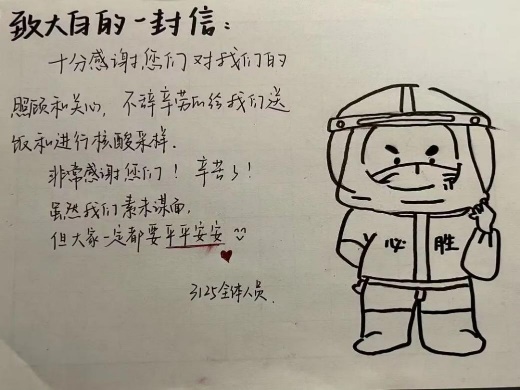 致大白的一封信：
十分感谢您们对我们的
照顾和关心，不辞辛劳的给我们送
饭和进行核酸采样.
非常感谢您们！辛苦了！
虽然我们素未谋面，
但大家一定都要平平安安
3125全体人员.
必胜